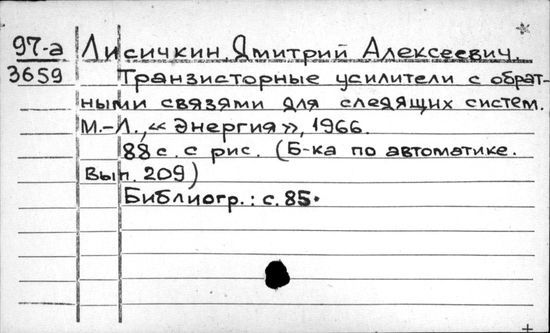 97-а Лисичкин, Дмитрий Алексеевич.
3659 Транзисторные усилители с обрат-
ными связями для следящих систем.
М.-Л., «Энергия», 1966.
88 с. с рис. (Б-ка по автоматике.
Вып. 209)
Библиогр.: с. 85.